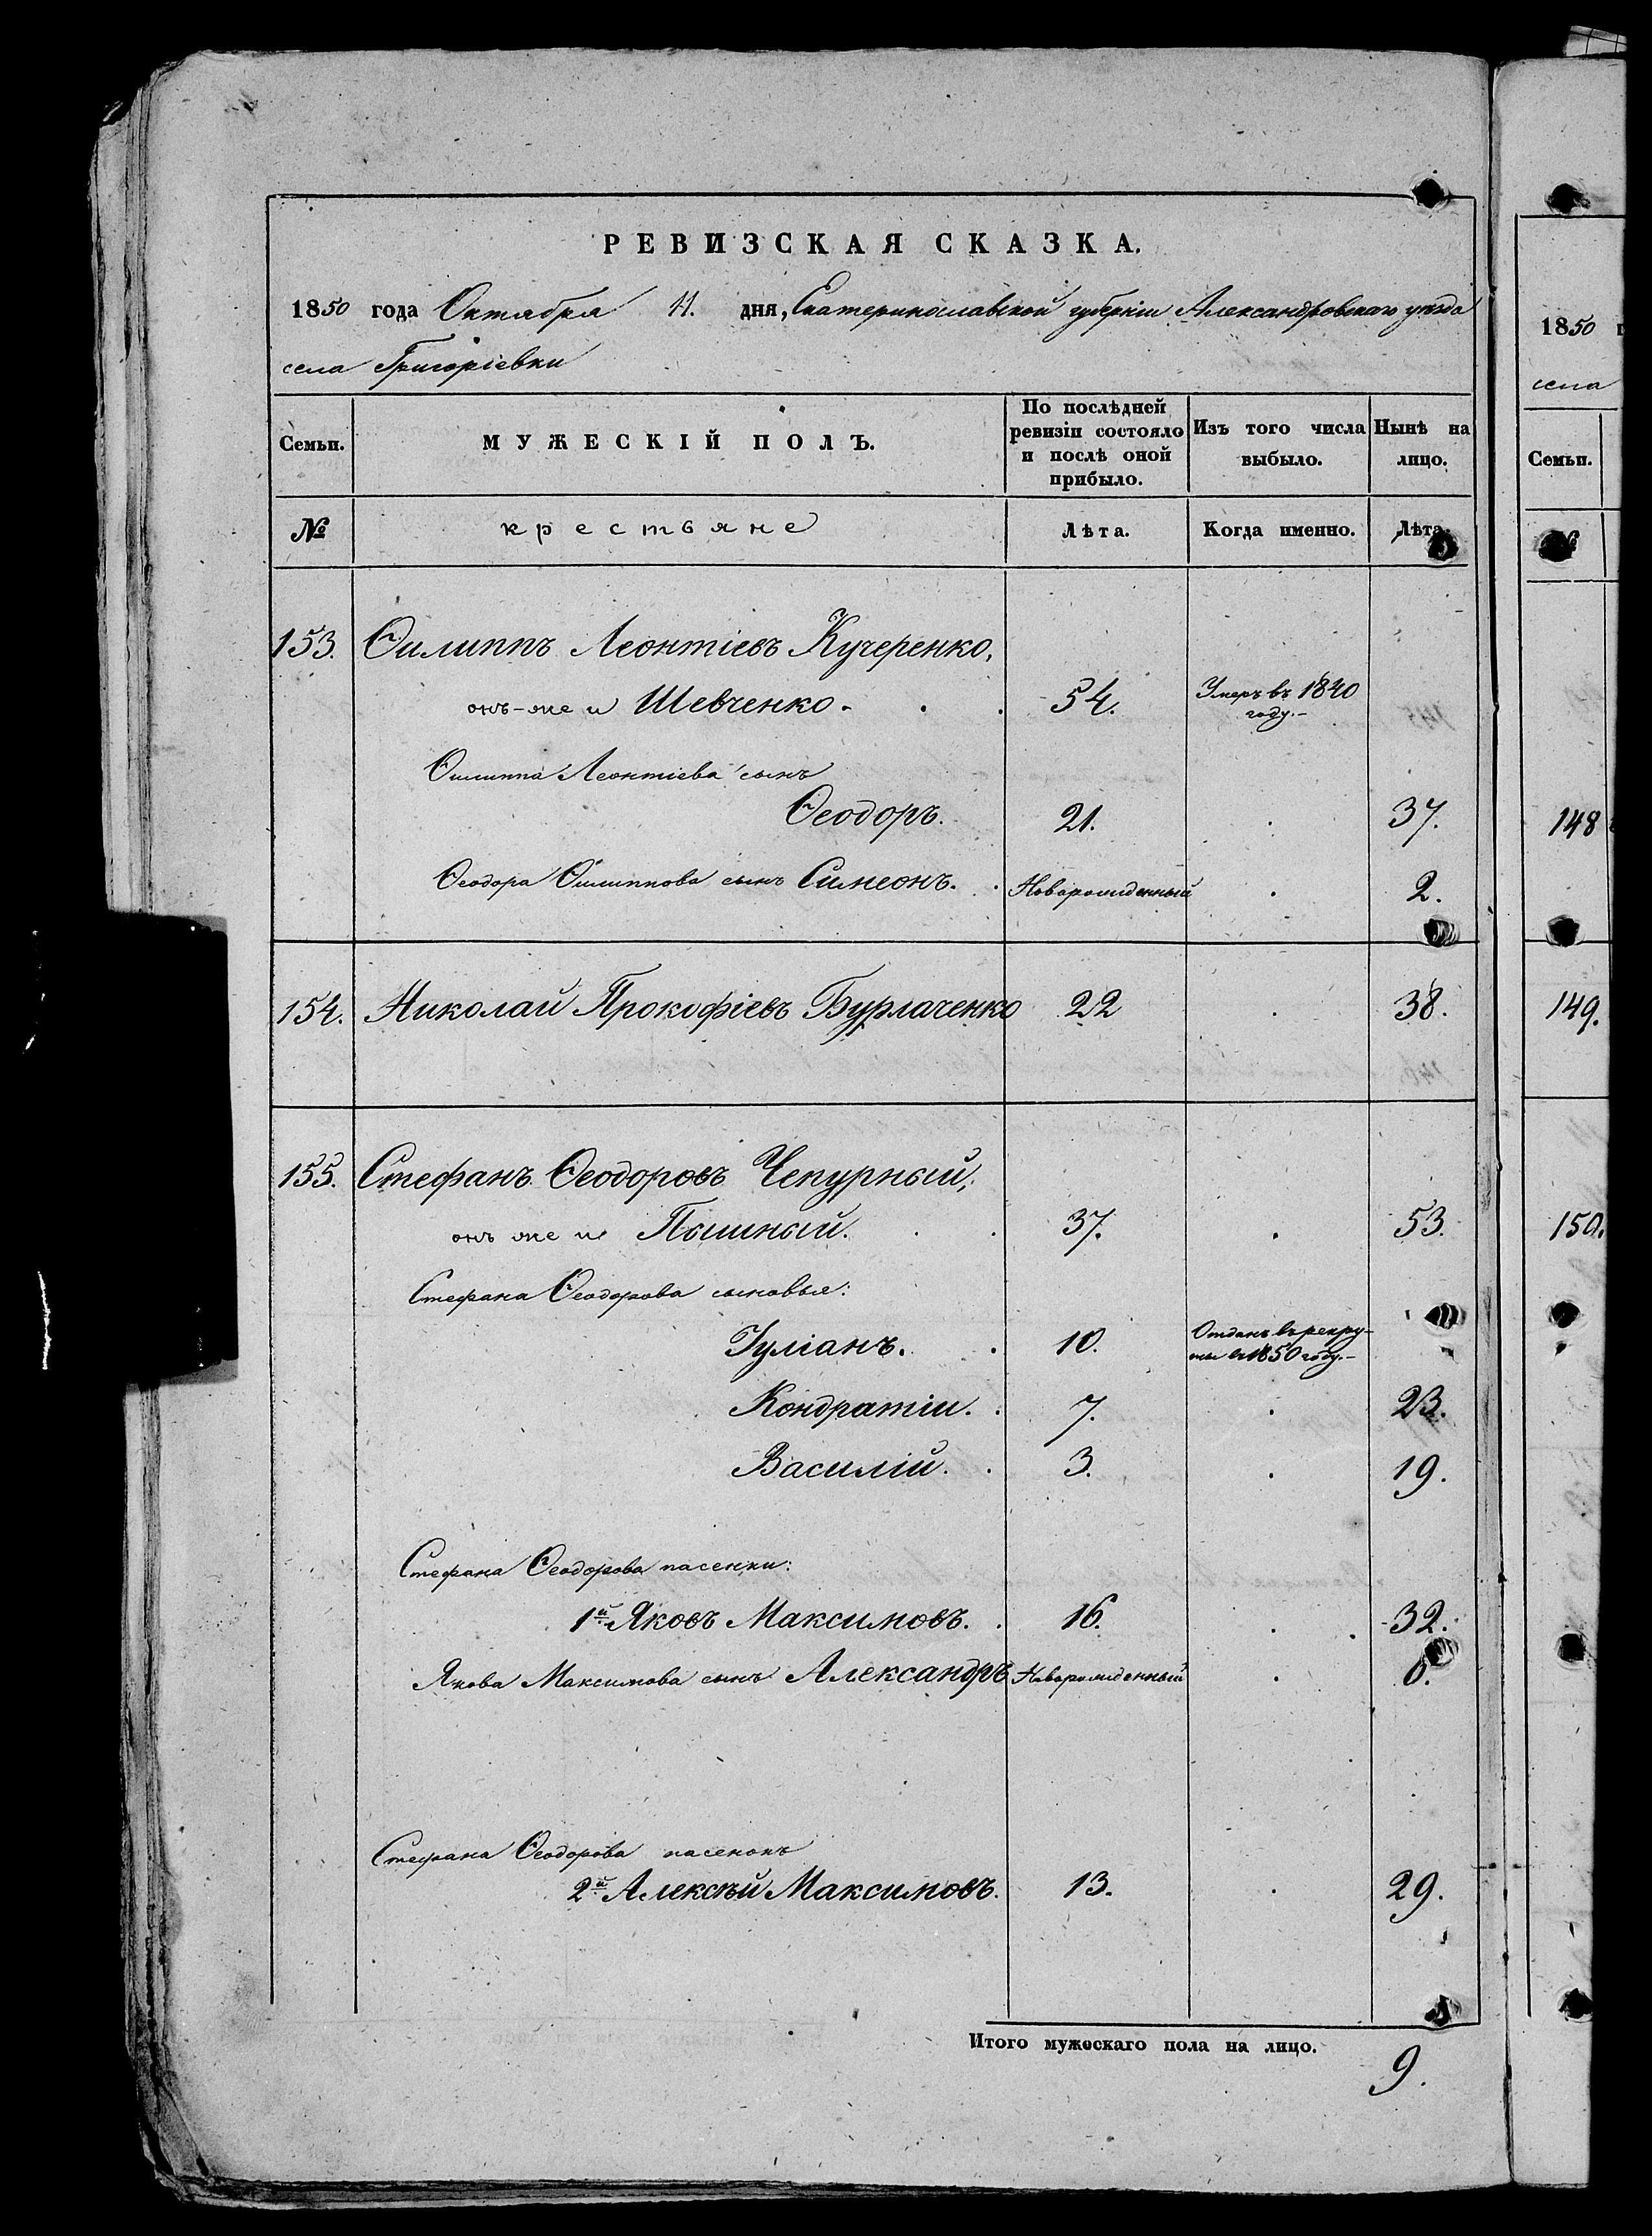 РЕВИЗСКАЯ СКАЗКА.
1850 года Октября 11. дня, Екатеринославской губерніи Александровскаго уѣзда
села Григоріевки
Семьи.
МУЖЕСКІЙ ПОЛЪ.
По послѣдней ревизіи состояло и послѣ оной прибыло.
Изъ того числа выбыло.
Нынѣ на лицо.
№ крестьяне Лѣта. Когда именно. Лѣта.
153. Ѳилиппъ Леонтіевъ Кучеренко,
онъ-же и Шевченко. 54. Умеръ въ 1840 году.-
Ѳилиппа Леонтіева сынъ
Ѳеодоръ. 21. 37.
Ѳеодора Ѳилиппова сынъ Симеонъ. Новорожденный 2.
154. Николай Прокофіевъ Бурлаченко 22 38.
155. Стефанъ Ѳеодоровъ Чепурный,
онъ же и Пышный. 37. 53.
Стефана Ѳеодорова сыновья:
Іуліанъ. 10. Отданъ въ рекру-
ты въ 1850 году.-
Кондратій. 7. 23.
Василій. 3. 19.
Стефана Ѳеодорова пасенки:
1й Яковъ Максимовъ. 16. 32.
Якова Максимова сынъ Александръ Новорожденный 0.
Стефана Ѳеодорова пасенокъ
2й Алексѣй Максимовъ. 13. 29.
Итого мужескаго пола на лицо.
9.
1850
села
Семьи.
№
148
149.
150.